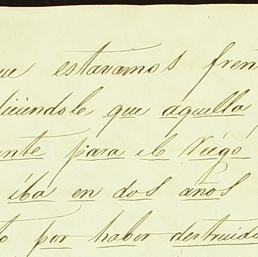 ue estavamos fren
diciendole que aquella
ente para ib
iba en dos años
o por haber destruida